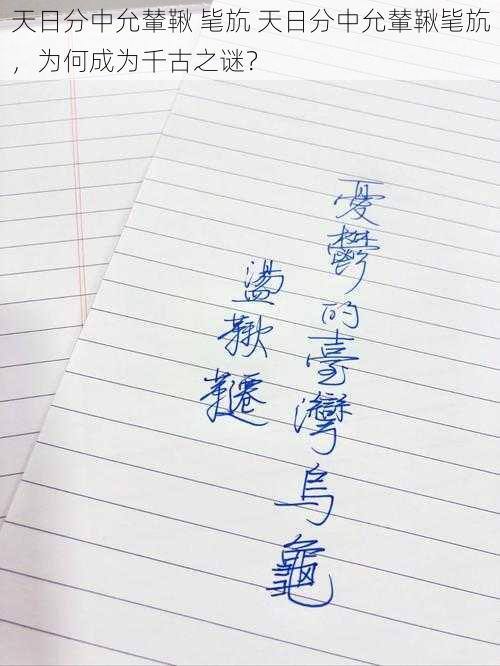 天日分中允辇鞦 毞旂 天日分中允辇鞦毞旂
，为何成为千古之谜？
憂鬱的臺灣烏龜
盪鞦韆